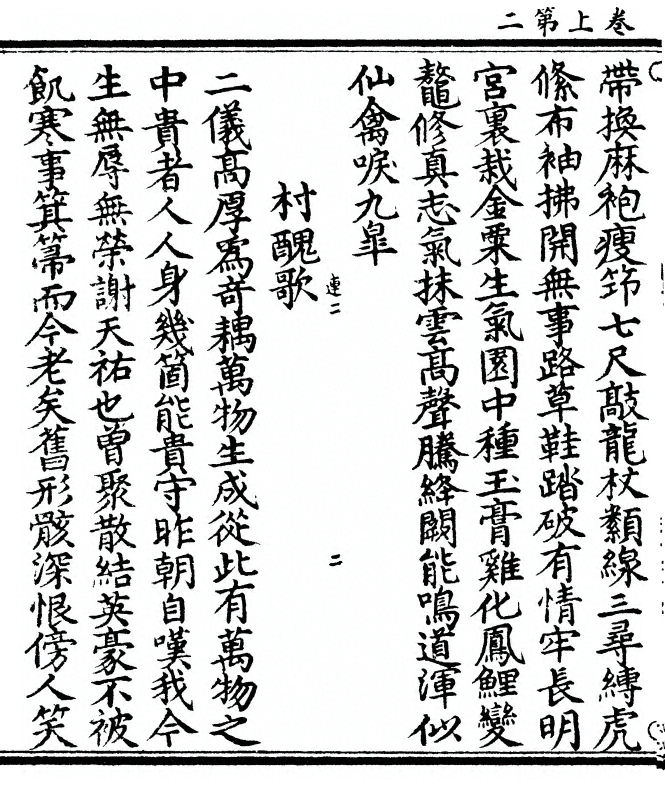 卷上第二
帶換麻袍瘦笻七尺敲龍杖纇線三尋縛虎
絛布袖拂開無事路草鞋踏破有情牢長明
宮裏栽金粟生氣園中種玉膏雞化鳳鯉變
鼇修真志氣抹雲高聲騰絳闕能鳴道渾似
仙禽唳九臯
村醜歌
連二
二
二儀高厚為奇耦萬物生成從此有萬物之
中貴者人人身幾箇能貴守昨朝自嘆我今
生無辱無榮謝天祐也曾聚散結英豪不被
飢寒事箕箒而今老矣舊形骸深恨傍人笑